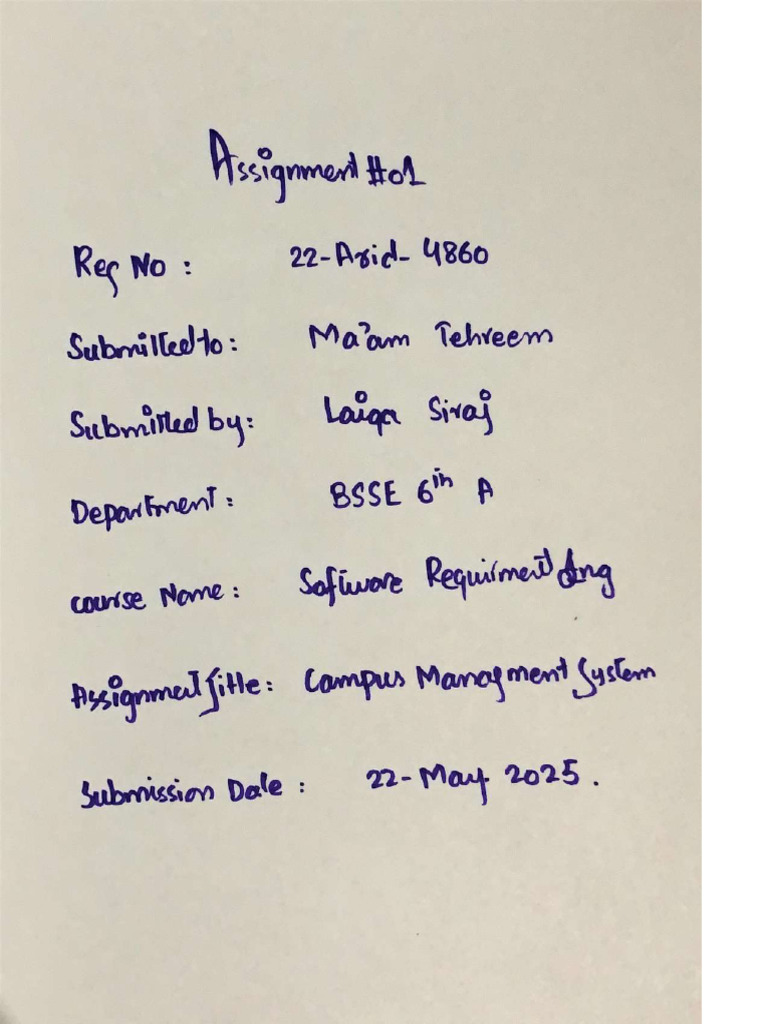 Assignment #01
Reg No : 22-Arid-4860
Submitted to: Ma'am Tehreem
Submitted by: Laiqa Siraj
Department: BSSE 6th A
course Name: Software Requirment Eng
Assignment Title: Campus Managment System
Submission Date : 22-May 2025.